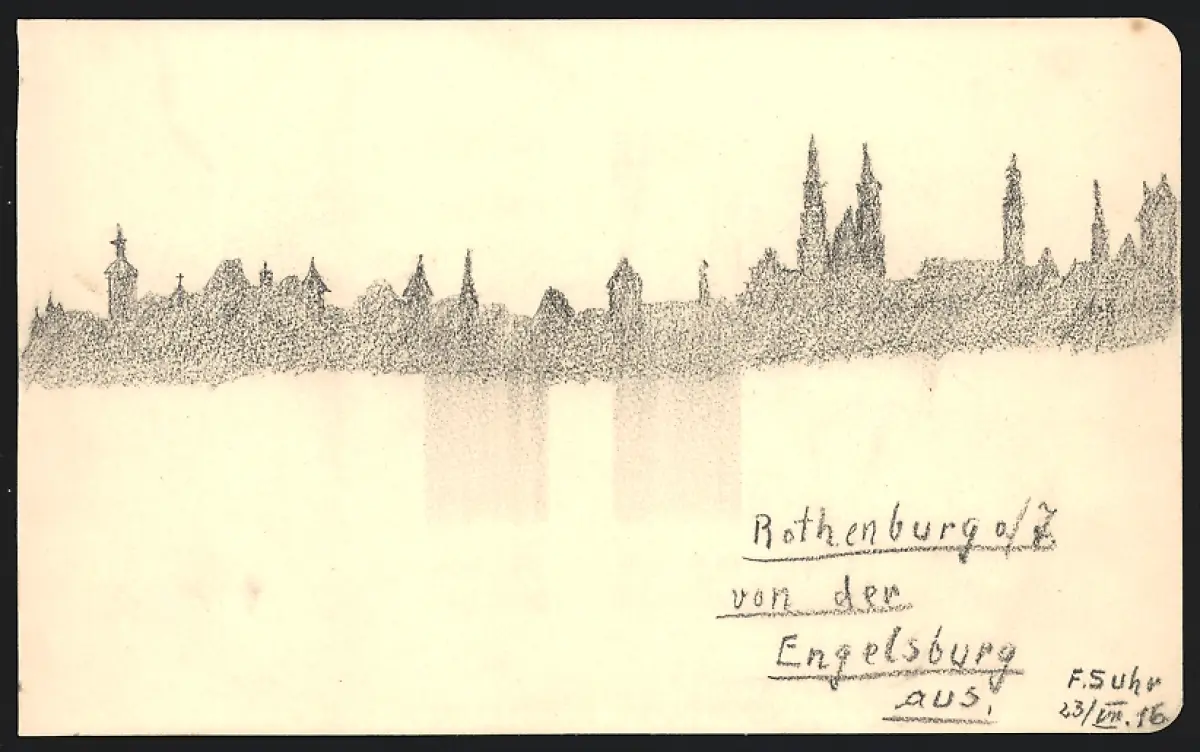 Rothenburg o/T
von der
Engelsburg
aus.
F. Suhr
23/VII. 16